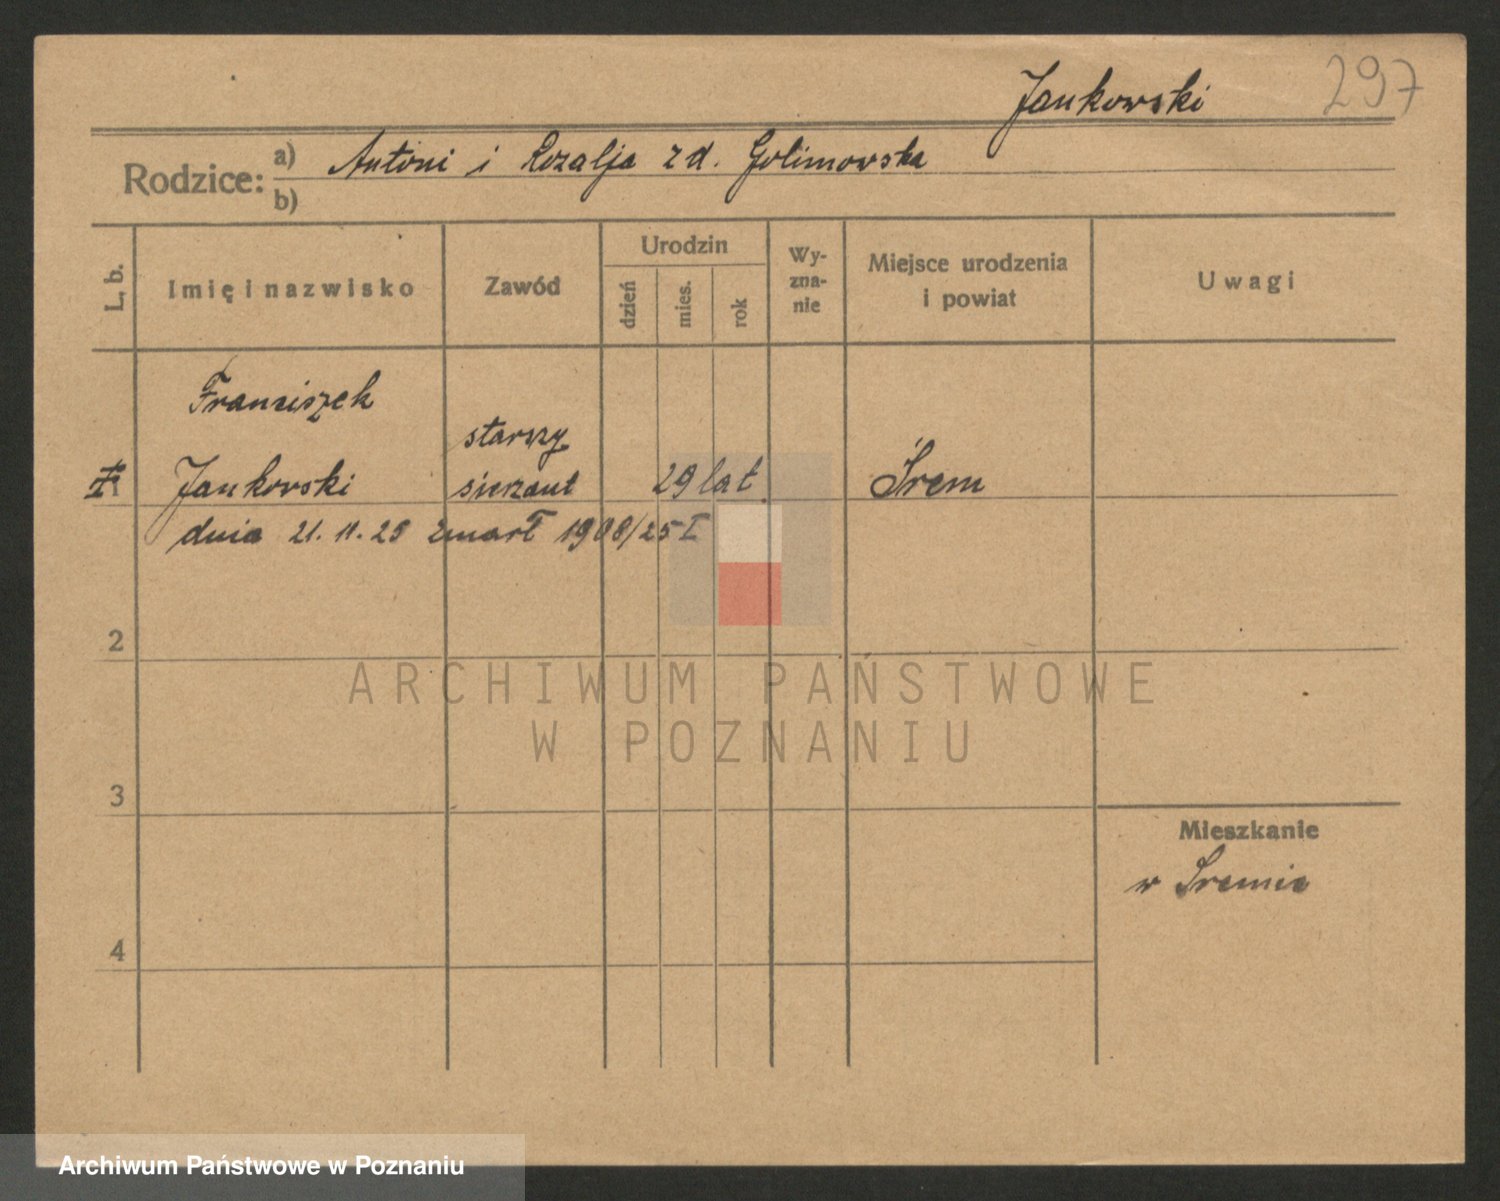 297
Jankowski
Rodzice: a) Antoni i Rozalja zd. Golimowska
b)
L. b.
Imię i nazwisko
Zawód
Urodzin
dzień
mies.
rok
Wy-
zna-
nie
Miejsce urodzenia
i powiat
Uwagi
Franciszek
Jankowski
starszy
sierżant
29 lat
Śrem
1
dnia 21.11.25 zmarł 1908/25 I
2
3
4
Mieszkanie
w Śremie
ARCHIWUM PAŃSTWOWE
W POZNANIU
Archiwum Państwowe w Poznaniu